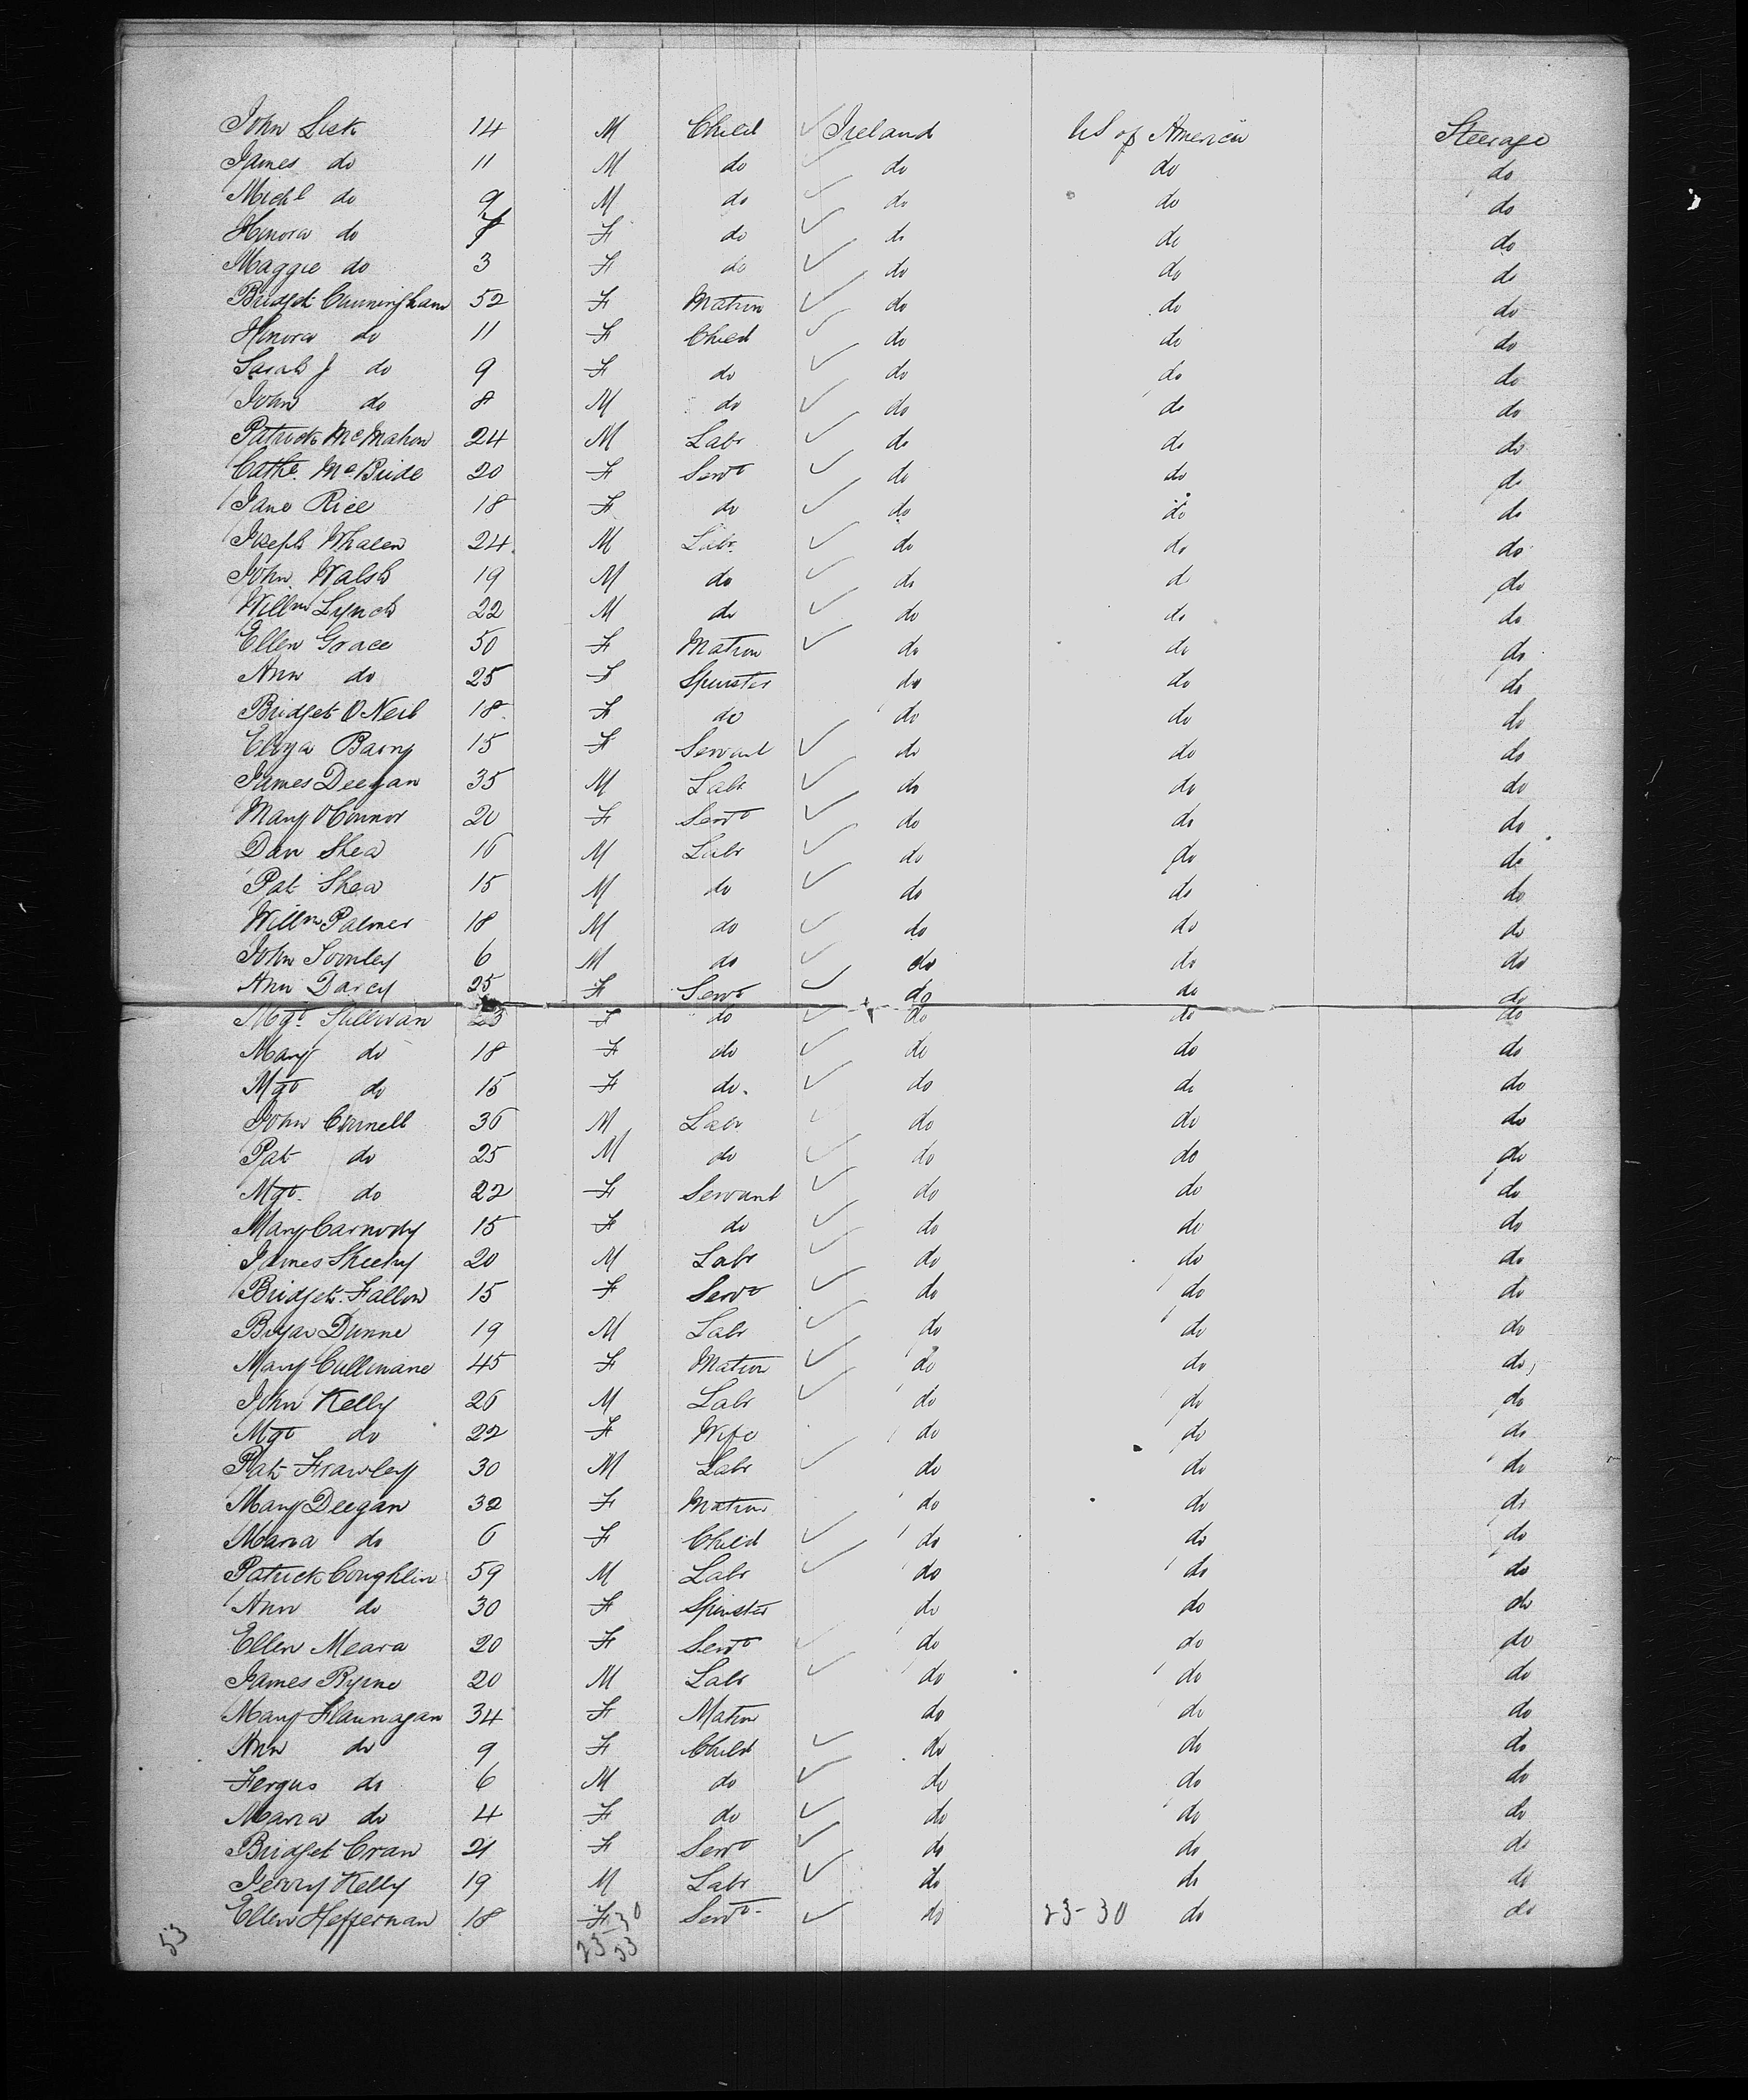 John Lisk 14 M Child Ireland US of America Steerage
James do 11 M do do do do
Michl do 9 M do do do do
Honora do 7 F do do do do
Maggie do 3 F do do do do
Bridget Cunningham 52 F Matron do do do
Honora do 11 F Child do do do
Sarah J do 9 F do do do do
John do 8 M do do do do
Patrick McMahon 24 M Labr do do do
Cathe. McBride 20 F Servt do do do
Jane Rice 18 F do do do do
Joseph Whalen 24 M Labr. do do do
John Walsh 19 M do do do do
Willm Lynch 22 M do do do do
Ellen Grace 50 F Matron do do do
Ann do 25 F Spinster do do do
Bridget O Neil 18 F do do do do
Eliza Barry 15 F Servant do do do
James Deegan 35 M Labr do do do
Mary O'Connor 20 F Servt do do do
Dan Shea 16 M Labr do do do
Pat Shea 15 M do do do do
Willm Palmer 18 M do do do do
John 6 M do do do do
Ann Darcy 25 F Servt do do do
Mgt Sullivan 23 F do do do do
Mary do 18 F do do do do
Mgt do 15 F do. do do do
John Connell 36 M Labr do do do
Pat do 25 M do do do do
Mgt. do 22 F Servant do do do
Mary Carmody 15 F do do do do
James Sheehy 20 M Labr do do do
Bridget Fallon 15 F Servt do do do
Bryan Dunne 19 M Labr do do do
Mary Cullinane 45 F Matron do do do
John Kelly 26 M Labr do do do
Mgt do 22 F Wife do do do
Pat Frawley 30 M Labr do do do
Mary Deegan 32 F Matron do do do
Maria do 6 F Child do do do
Patrick Coughlin 59 M Labr do do do
Ann do 30 F Spinster do do do
Ellen Meara 20 F Servt do do do
James Ryne 20 M Labr do do do
Mary Flannagan 34 F Matron do do do
Ann do 9 F Child do do do
Fergus do 6 M do do do do
Maria do 4 F do do do do
Bridget Cran 21 F Servt do do do
Jerry Kelly 19 M Labr do do do
Ellen Heffernan 18 F 30 Servt do 23-30 do do
53 23 53